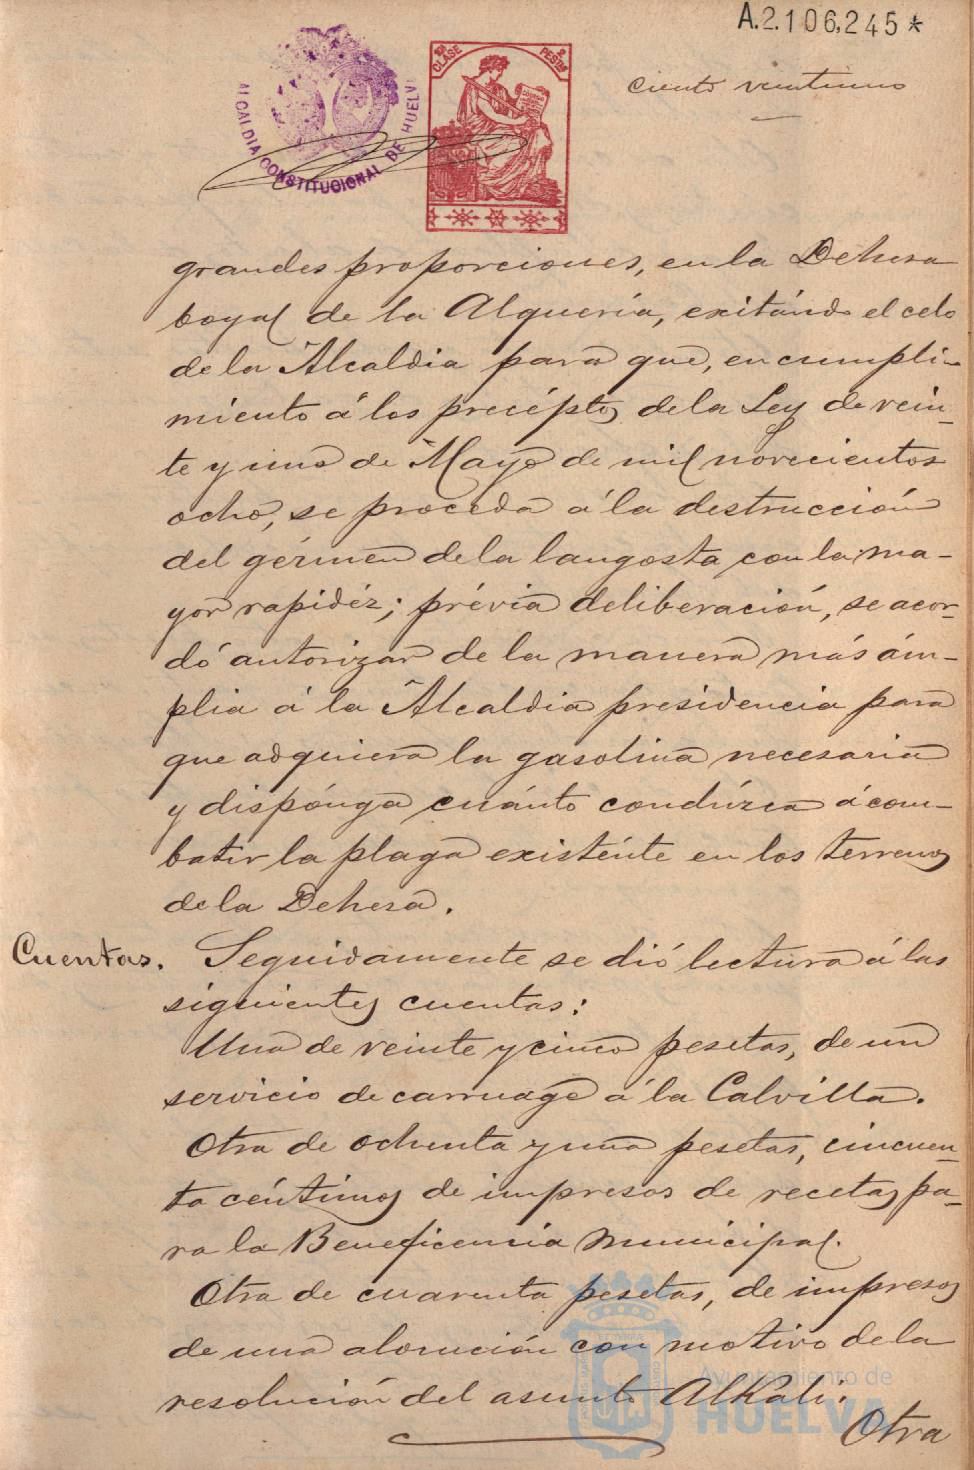 A.2.106,245*
ciento veintiuno
ALCALDIA CONSTITUCIONAL DE HUELV
CLASE
PESETAS
grandes proporciones, en la Dehesa
boyal de la Alquería, exitándo el celo
de la Alcaldia para que, en cumpli-
miento á los precéptos de la Ley de vein-
te y uno de Mayo de mil novecientos
ocho, se proceda á la destrucción
del gérmen de la langosta con la ma-
yor rapidéz; prévia deliberación, se acor-
dó autorizar de la manera más ám-
plia á la Alcaldia presidencia para
que adquiera la gasolina necesaria
y dispónga cuánto condúzca á com-
batir la plaga existénte en los terrenos
de la Dehesa.
Cuentas. Seguidamente se dió lectura á las
siguientes cuentas:
Una de veinte y cinco pesetas, de un
servicio de carruage á la Calvilla.
Otra de ochenta y una pesetas, cincuen-
ta céntimos de impresos de recetas pa-
ra la Beneficencia Municipal.
Otra de cuarenta pesetas, de impresos
de una alocución con motivo de la
resolución del asunto Alkali.
Otra
Ayuntamiento de
HUELVA